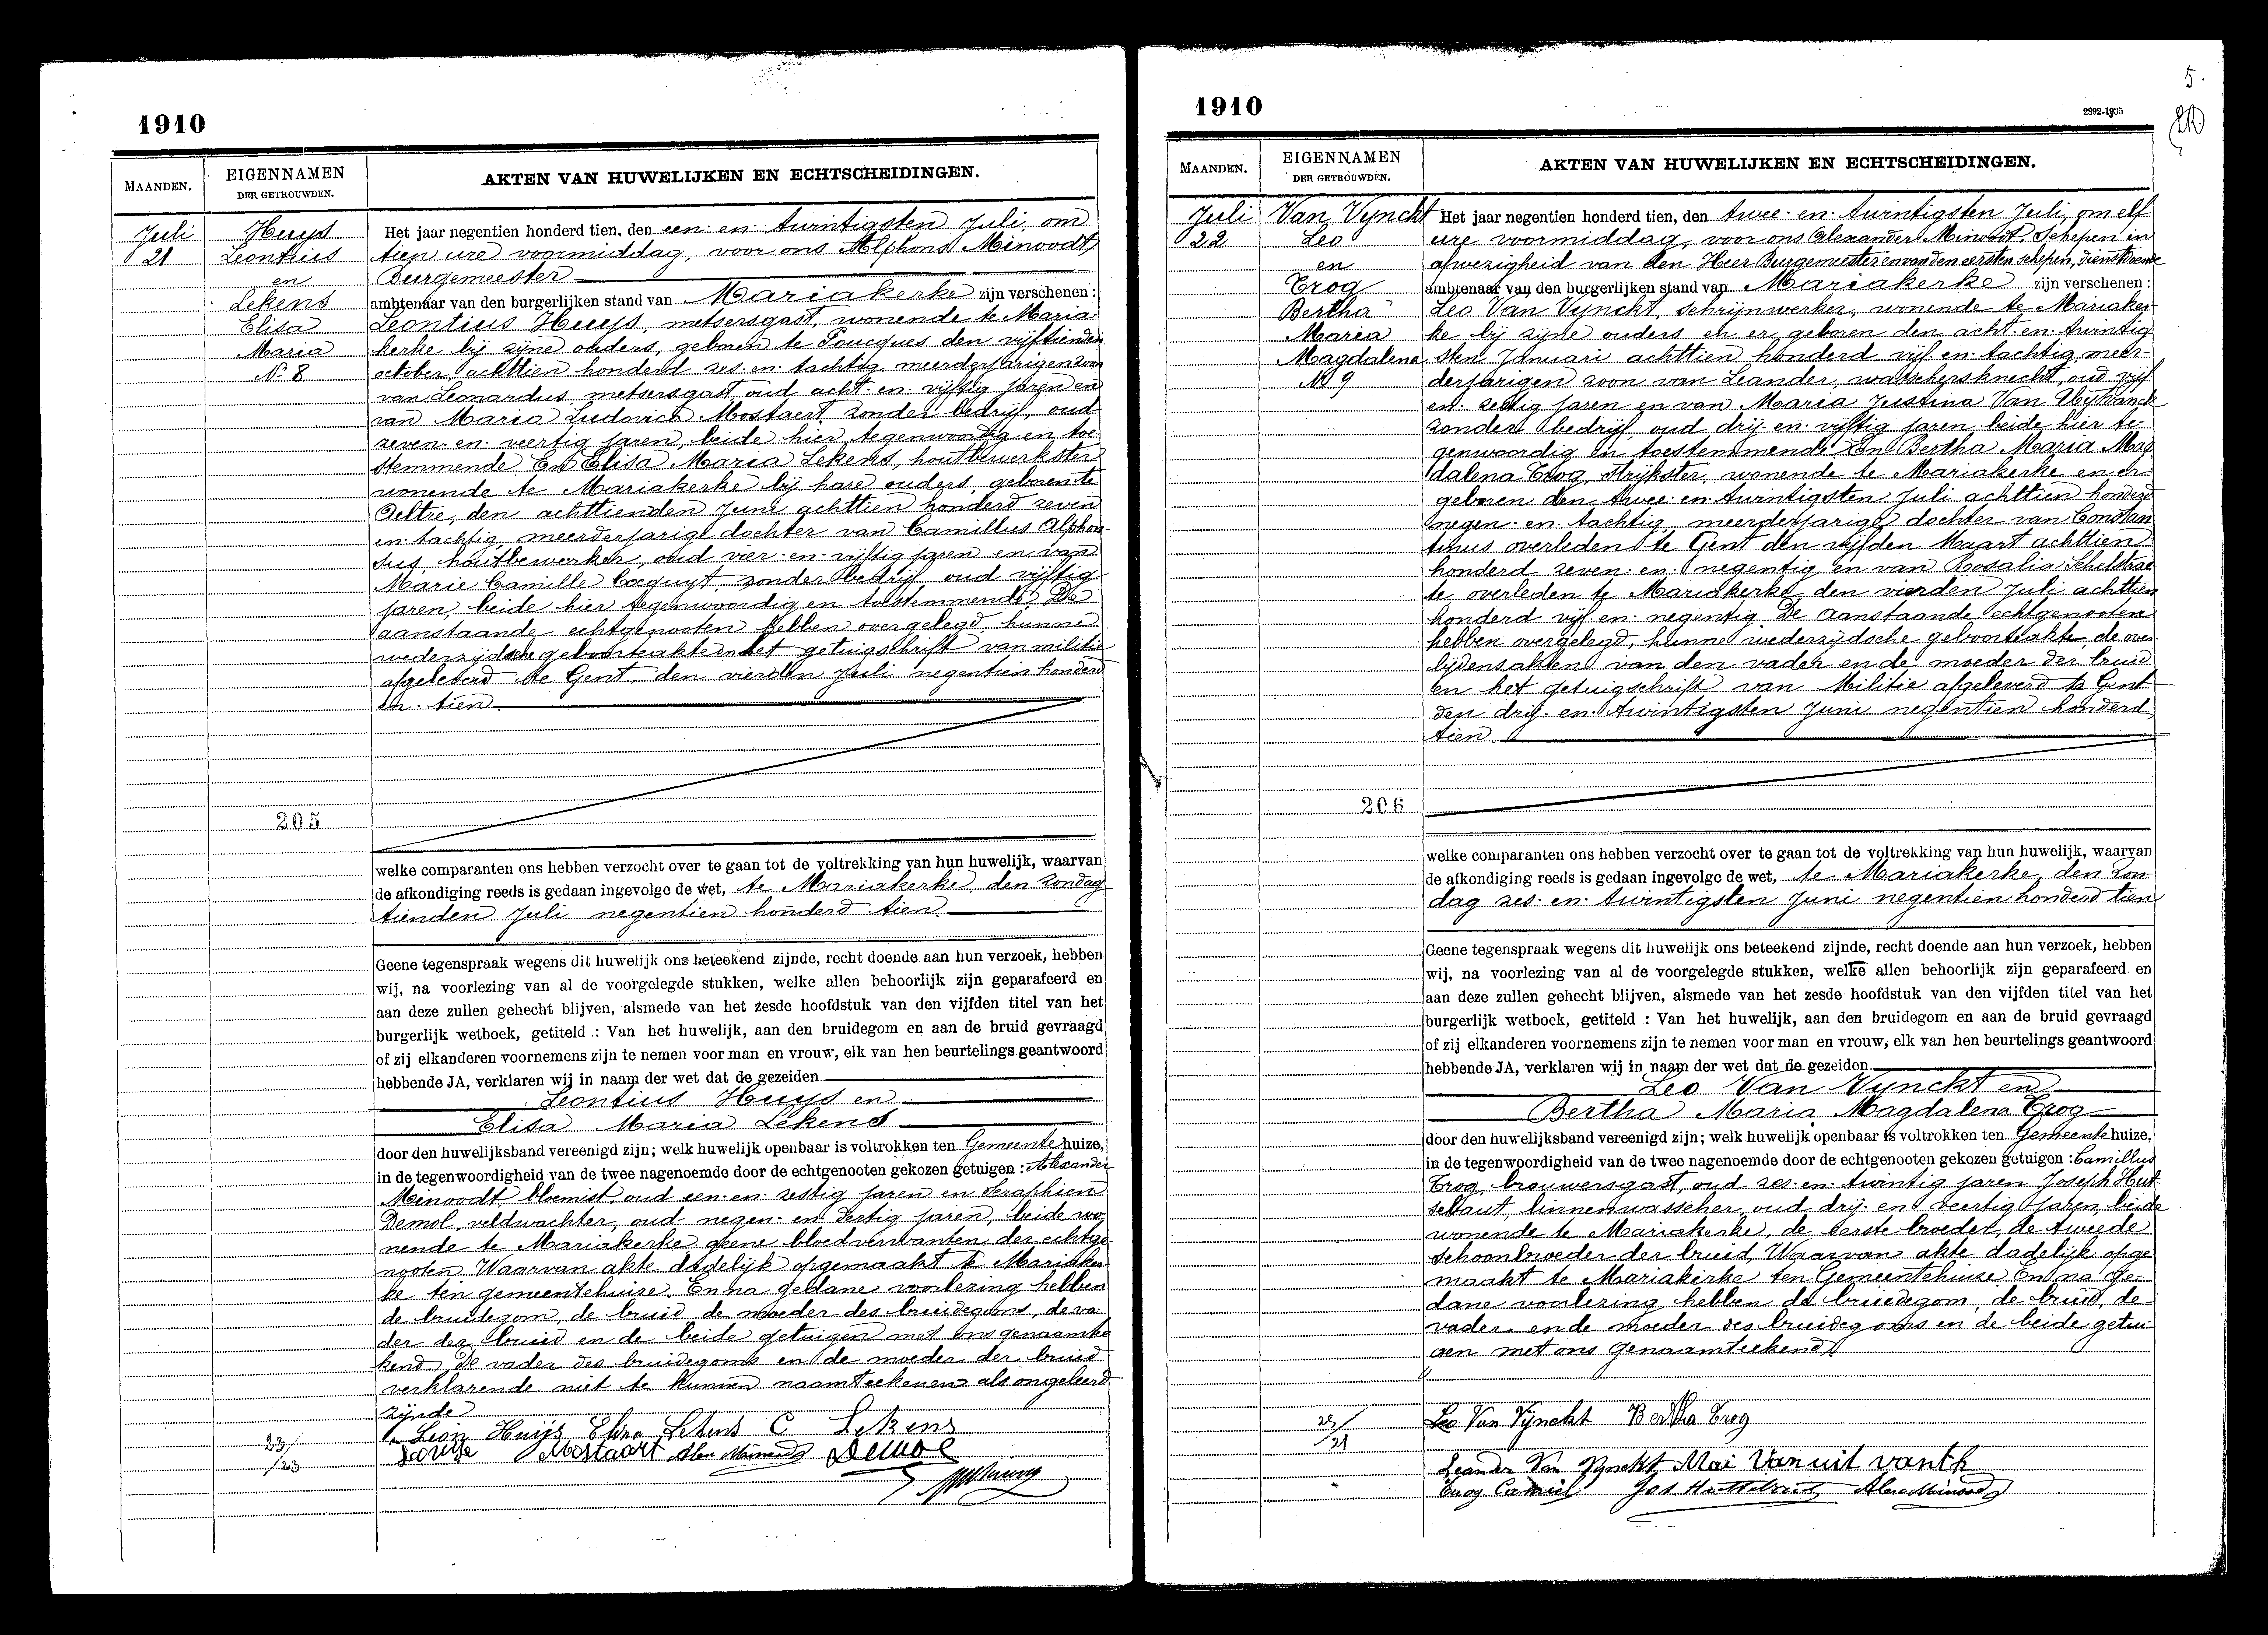 1910
MAANDEN.
EIGENNAMEN
DER GETROUWDEN.
AKTEN VAN HUWELIJKEN EN ECHTSCHEIDINGEN.
Juli
21
Huys
Leontius
en
Lekens
Elisa
Maria
N. 8
205
Het jaar negentien honderd tien, den een en twintigsten Juli, om
tien ure voormiddag, voor ons Alphons Minoodt,
Burgemeester
ambtenaar van den burgerlijken stand van Mariakerke zijn verschenen:
Leontius Huys, metsersgast, wonende te Maria
kerke bij zijne ouders, geboren te Poucques den vijftienden
october achttien honderd zes en tachtig meerderjarigen zoon
van Leonardus metsersgast oud acht en vijftig jaren en
van Maria Ludovica Mostaert zonder bedrijf, oud
zeven en veertig jaren, beide hier tegenwoordig en toe
stemmende En Elisa Maria Lekens, houtbewerkster
wonende te Mariakerke bij hare ouders, geboren te
Aeltre, den achttienden Juni achttien honderd zeven
en tachtig, meerderjarige dochter van Camillus Alphon
sus, houtbewerker, oud vier en vijftig jaren en van
Marie Camille Cocquyt zonder bedrijf oud vijftig
jaren, beide hier tegenwoordig en toestemmende. De
aanstaande echtgenooten hebben overgelegd hunne
wederzijdsche geboorteakte en het getuigschrift van militie
afgeleverd te Gent, den vierden Juli negentien honderd
en tien
welke comparanten ons hebben verzocht over te gaan tot de voltrekking van hun huwelijk, waarvan
de afkondiging reeds is gedaan ingevolge de wet, te Mariakerke, den Zondag
tienden Juli negentien honderd tien
Geene tegenspraak wegens dit huwelijk ons beteekend zijnde, recht doende aan hun verzoek, hebben
wij, na voorlezing van al de voorgelegde stukken, welke allen behoorlijk zijn geparafeerd en
aan deze zullen gehecht blijven, alsmede van het zesde hoofdstuk van den vijfden titel van het
burgerlijk wetboek, getiteld : Van het huwelijk, aan den bruidegom en aan de bruid gevraagd
of zij elkanderen voornemens zijn te nemen voor man en vrouw, elk van hen beurtelings geantwoord
hebbende JA, verklaren wij in naam der wet dat de gezeiden
Leontius Huys en
Elisa Maria Lekens
door den huwelijksband vereenigd zijn; welk huwelijk openbaar is voltrokken ten Gemeente huize,
in de tegenwoordigheid van de twee nagenoemde door de echtgenooten gekozen getuigen : Alexander
Minoodt, bloemist, oud een en zestig jaren en Seraphien
Demol, veldwachter, oud negen en dertig jaren, beide wo
nende te Mariakerke geene bloedverwanten der echtge
nooten Waarvan akte dadelijk opgemaakt te Mariaker
ke ten gemeentehuize. En na gedane voorlezing hebben
de bruidegom, de bruid de moeder des bruidegoms, de va
der der bruid en de beide getuigen met ons genaamtee
kend. De vader des bruidegoms en de moeder der bruid
verklarende niet te kunnen naamteekenen als ongeleerd
zijnde
Leon Huijs Eliza Lekens C Lekens
Louise Mostaert Alex Minoodt Demol
23/
/23
1910
2892-1935
5.
MAANDEN.
EIGENNAMEN
DER GETROUWDEN.
AKTEN VAN HUWELIJKEN EN ECHTSCHEIDINGEN.
Juli
22
Van Vynckt
Leo
en
Trog
Bertha
Maria
Magdalena
No 9
206
Het jaar negentien honderd tien, den twee en twintigsten Juli, om elf
ure voormiddag, voor ons Alexander Minoodt, Schepen in
afwezigheid van den Heer Burgemeester en van den eersten schepen, dienstdoende
ambtenaar van den burgerlijken stand van Mariakerke zijn verschenen:
Leo Van Vynckt, schrijnwerker, wonende te Mariaker
ke bij zijne ouders en er geboren den acht en twintig
sten Januari achttien honderd vijf en tachtig meer
derjarigen zoon van Leander, wasschersknecht, oud vijf
en zestig jaren en van Maria Justina Van Uytvanck
zonder bedrijf, oud drij en vijftig jaren beide hier te
genwoordig en toestemmende En Bertha Maria Mag
dalena Trog, strijkster, wonende te Mariakerke en er
geboren den twee en twintigsten Juli achttien honderd
negen en tachtig meerderjarige dochter van Constan
tinus overleden te Gent den vijfden Maart achttien
honderd zeven en negentig en van Rosalia Schelstrae
te overleden te Mariakerke den vierden Juli achttien
honderd vijf en negentig De aanstaande echtgenooten
hebben overgelegd, hunne wederzijdsche geboorteakte, de over
lijdensakten van den vader en de moeder der bruid
en het getuigschrift van Militie afgeleverd te Gent
den drij en twintigsten Juni negentien honderd
tien
welke comparanten ons hebben verzocht over te gaan tot de voltrekking van hun huwelijk, waarvan
de afkondiging reeds is gedaan ingevolge de wet, te Mariakerke, den Zon
dag zes en twintigsten Juni negentien honderd tien
Geene tegenspraak wegens dit huwelijk ons beteekend zijnde, recht doende aan hun verzoek, hebben
wij, na voorlezing van al de voorgelegde stukken, welke allen behoorlijk zijn geparafeerd en
aan deze zullen gehecht blijven, alsmede van het zesde hoofdstuk van den vijfden titel van het
burgerlijk wetboek, getiteld : Van het huwelijk, aan den bruidegom en aan de bruid gevraagd
of zij elkanderen voornemens zijn te nemen voor man en vrouw, elk van hen beurtelings geantwoord
hebbende JA, verklaren wij in naam der wet dat de gezeiden
Leo Van Vynckt en
Bertha Maria Magdalena Trog
door den huwelijksband vereenigd zijn; welk huwelijk openbaar is voltrokken ten Gemeente huize,
in de tegenwoordigheid van de twee nagenoemde door de echtgenooten gekozen getuigen : Camillus
Trog, brouwersgast, oud zes en twintig jaren Joseph Hut
sebaut, linnenwasscher, oud drij en veertig jaren, beide
wonende te Mariakerke, de eerste broeder, de tweede
schoonbroeder der bruid, Waarvan akte dadelijk opge
maakt te Mariakerke ten Gemeentehuise En na ge
dane voorlezing hebben de bruidegom, de bruid, de
vader en de moeder des bruidegoms en de beide getui
gen met ons genaamteekend
Leo Van Vynckt Bertha Trog
Leander Van Vynckt Mai Van uit vanck
Trog Camiel Jos Hutsebaut Alex Minoodt
/21